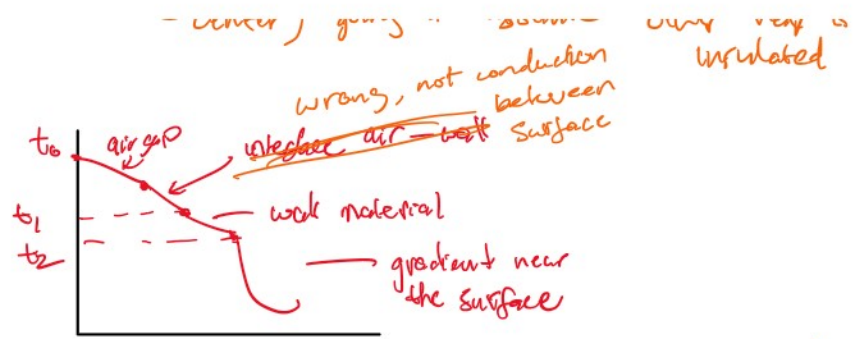 insulated
wrong, not conduction
between
surface
t₀
air gap
interface air - wall
t₁
wall material
t₂
gradient near
the surface